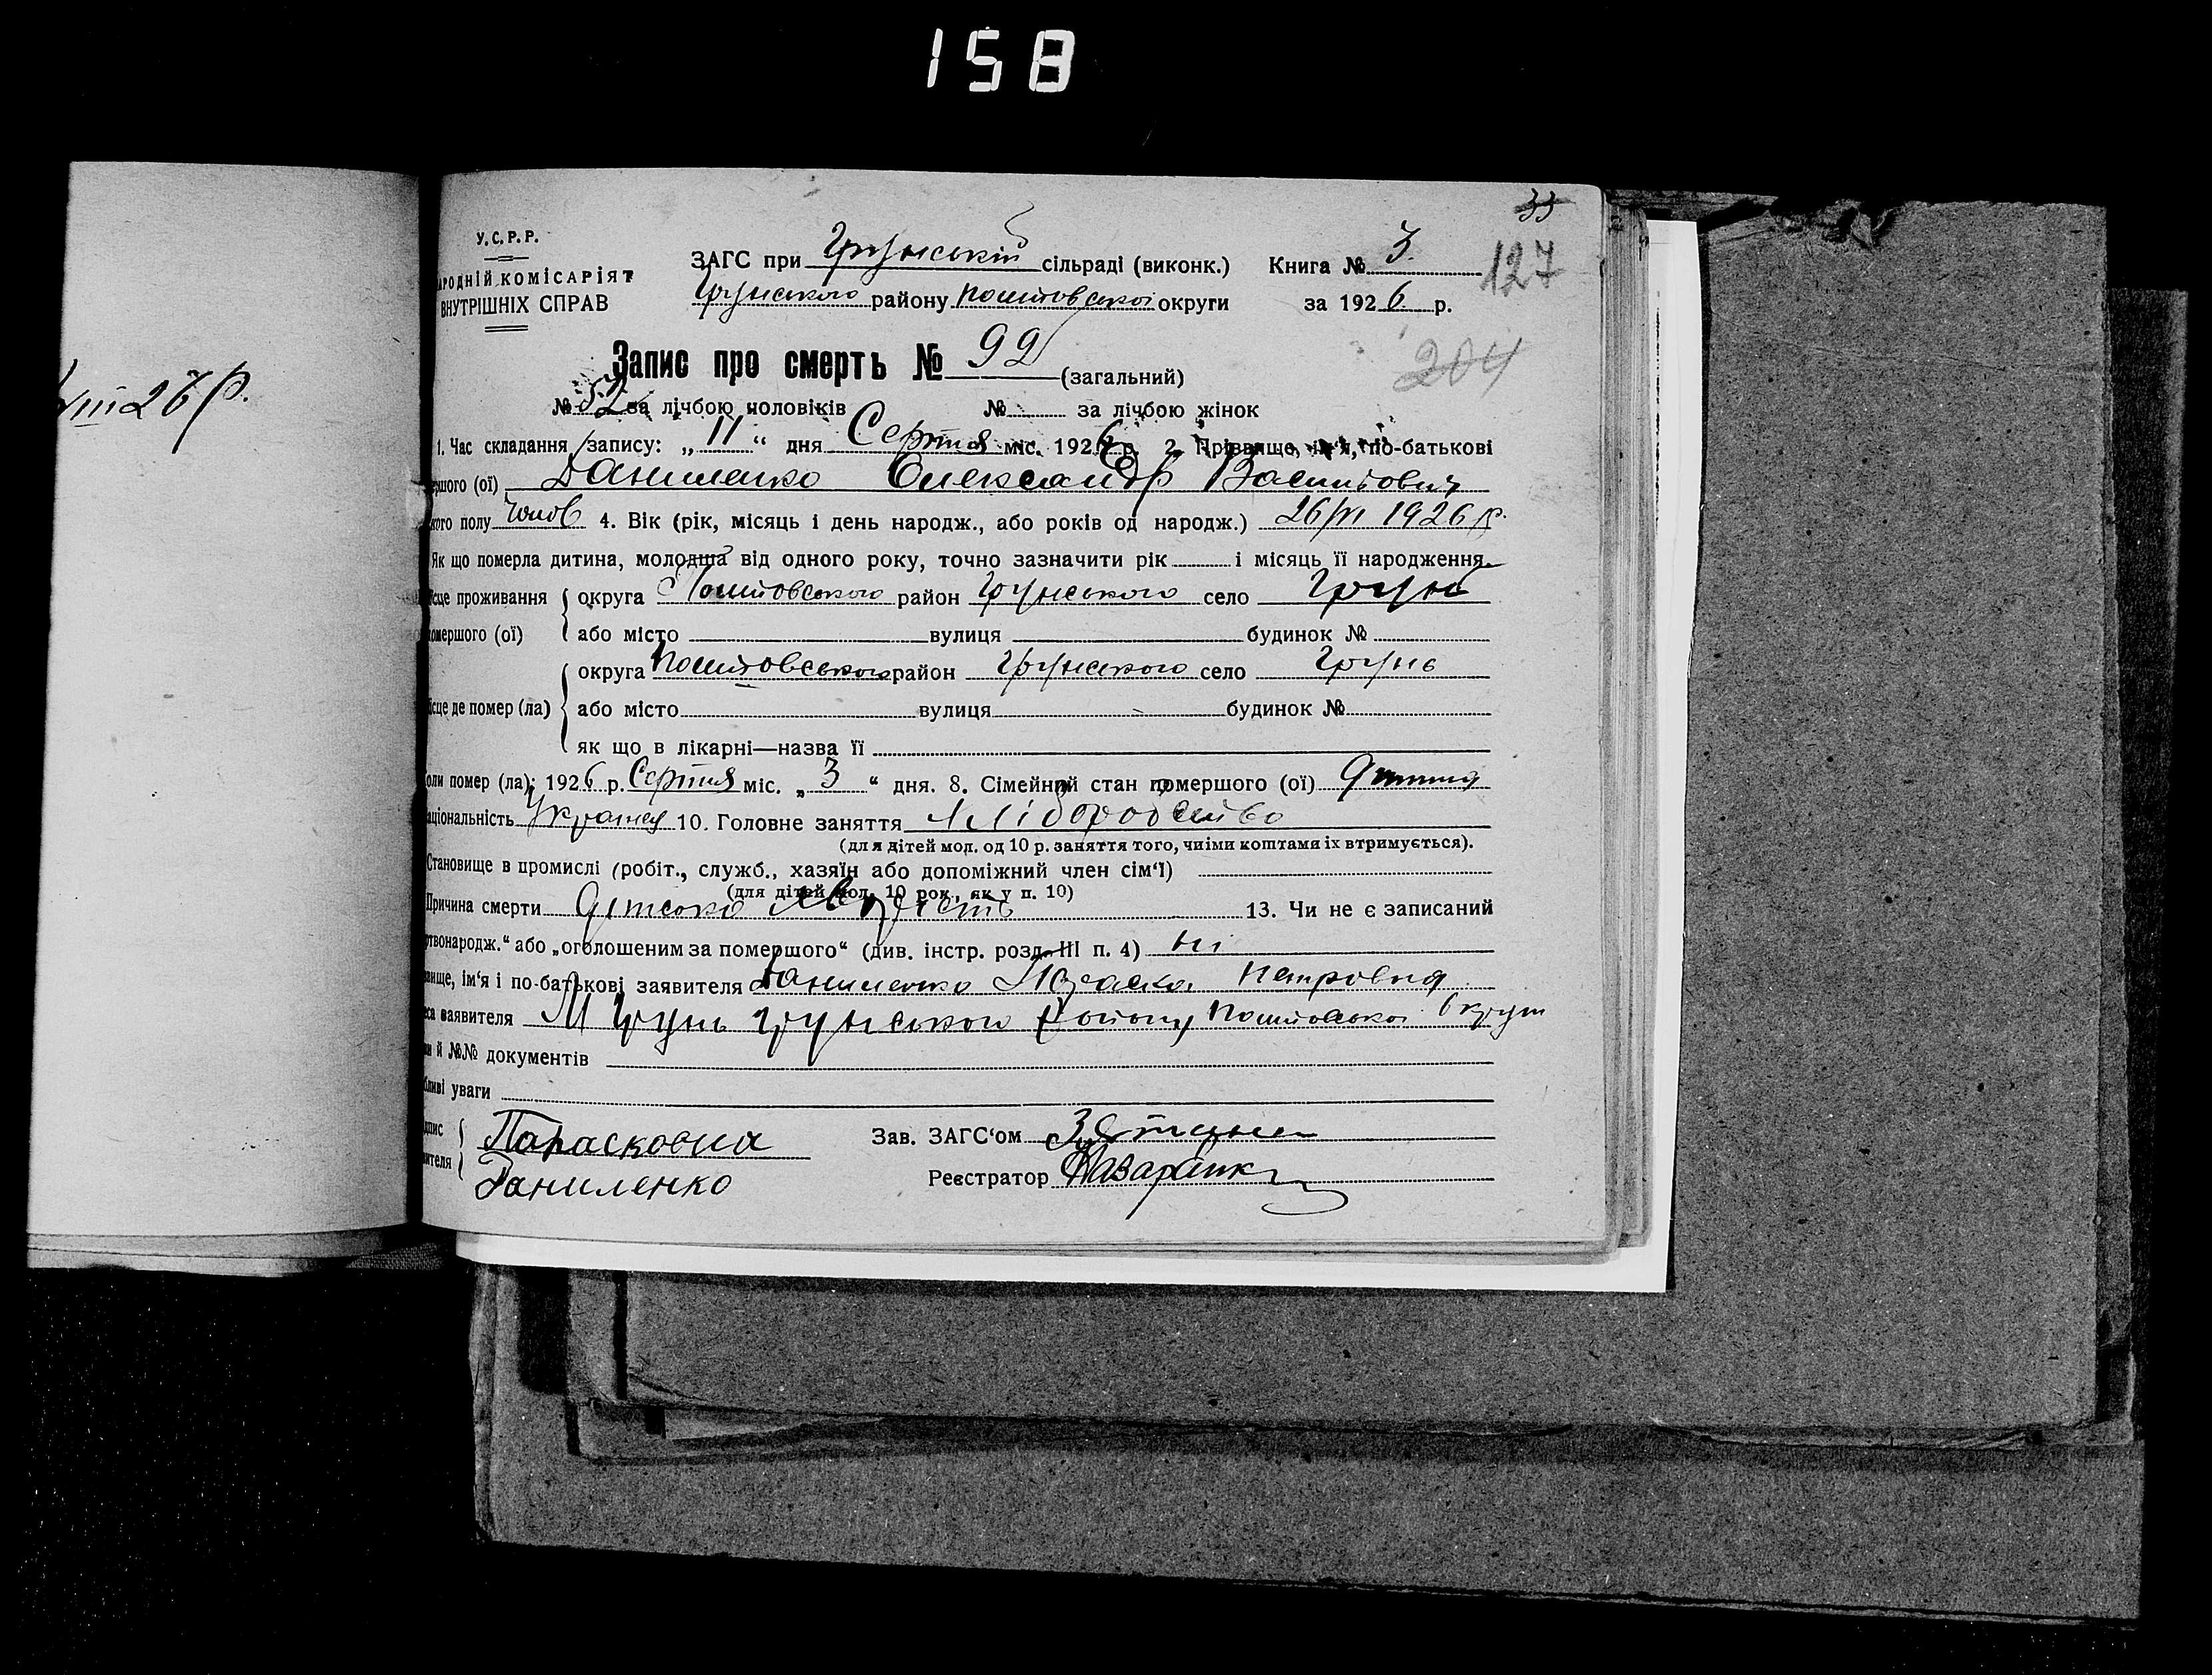 158
33
127
204
VIII 26 р.
У.С.Р.Р.
АРОДНІЙ КОМІСАРІЯТ
ВНУТРІШНІХ СПРАВ
ЗАГС при Грунській сільраді (виконк.) Книга № 3
Грунського району Полтовської округи за 1926 р.
Запис про смерть № 92 (загальний)
№ 52 за лічбою чоловіків № за лічбою жінок
1. Час складання запису: „11“ дня Серпня міс. 1926 р. 2. Прізвище, ім'я, по-батькові
ршого (ої) Даниленко Олександр Васильович
кого полу Чолов 4. Вік (рік, місяць і день народж., або років од народж.) 26/VI 1926 р.
Як що померла дитина, молодша від одного року, точно зазначити рік і місяць її народження
ісце проживання округа Полтовського район Грунського село Грунь
омершого (ої) або місто вулиця будинок №
округа Полтовського район Грунського село Грунь
ісце де помер (ла) або місто вулиця будинок №
як що в лікарні—назва її
оли помер (ла): 1926 р. Серпня міс. „3“ дня. 8. Сімейний стан помершого (ої) Дитина
аціональність Україней 10. Головне заняття Хліборобство
(для дітей мол. од 10 р. заняття того, чиїми коштами їх втримується).
Становище в промислі (робіт., служб., хазяїн або допоміжний член сім'ї)
(для дітей мол. 10 рок., як у п. 10)
Причина смерти Детська 13. Чи не є записаний
ртвонародж.“ або „оголошеним за помершого“ (див. інстр. розд. III п. 4) ні
вище, ім'я і по-батькові заявителя Даниленко Параска Петровна
са заявителя М Грунь Грунського Району Полтовської Округи
и й №№ документів
бливі уваги
дпис Парасковия Зав. ЗАГС'ом
вителя Даниленко Реєстратор